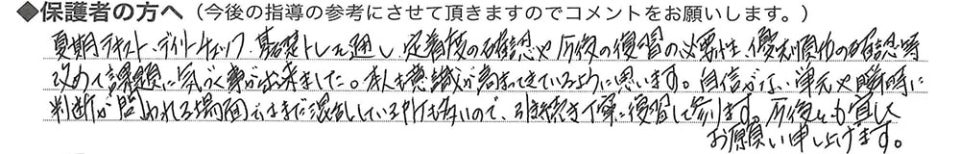 ◆保護者の方へ（今後の指導の参考にさせて頂きますのでコメントをお願いします。）
夏期テキスト、デイリーチェック、基礎トレを通し、定着度の確認や今後の復習の必要性、優先順位の確認等
改めて課題に気づく事が出来ました。本人も意識が高まってきているように思います。自信がない単元や瞬時に
判断が問われる場面ではまだ混乱している所も多いので、引き続き丁寧に復習して参ります。今後とも宜しく
お願い申し上げます。